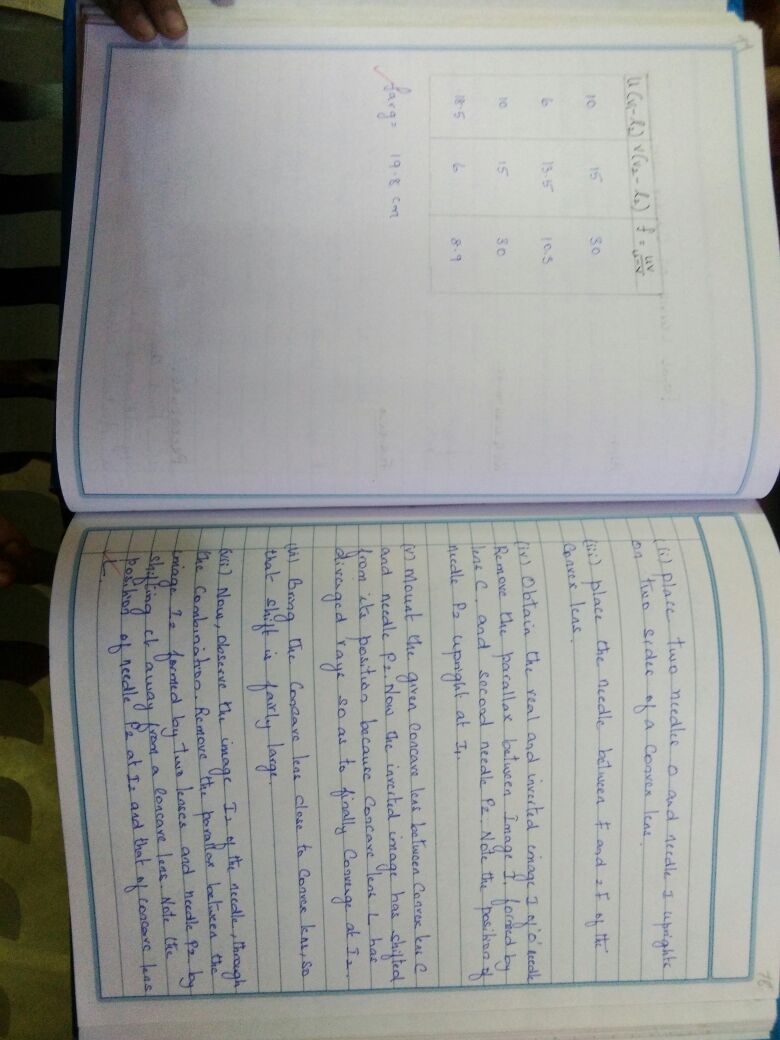 U(v₁-L₂) v(v₂-L₂) f = uv/u-v
10 15 30
6 13.5 10.3
10 15 30
18.5 6 8.9
favg = 19.8 cm
76
(ii) place two needles O and needle I uprights
on two sides of a convex lens.
(iii) place the needle between F and 2F of the
convex lens.
(iv) Obtain the real and inverted image I of 'O' needle
Remove the parallax between Image I, formed by
lens C and second needle P2. Note the position of
needle P2 upright at I1.
(v) Mount the given concave lens between convex lens C
and needle P2. Now the inverted image has shifted
from its position because concave lens L has
diverged rays so as to finally converge at I2.
(vi) Bring the concave lens close to convex lens, so
that shift is fairly large.
(vii) Now, observe the image I2 of the needle, through
the combination. Remove the parallax between the
image I2 formed by two lenses and needle P2 by
shifting it away from a concave lens. Note the
position of needle P2 at I2 and that of concave lens
L